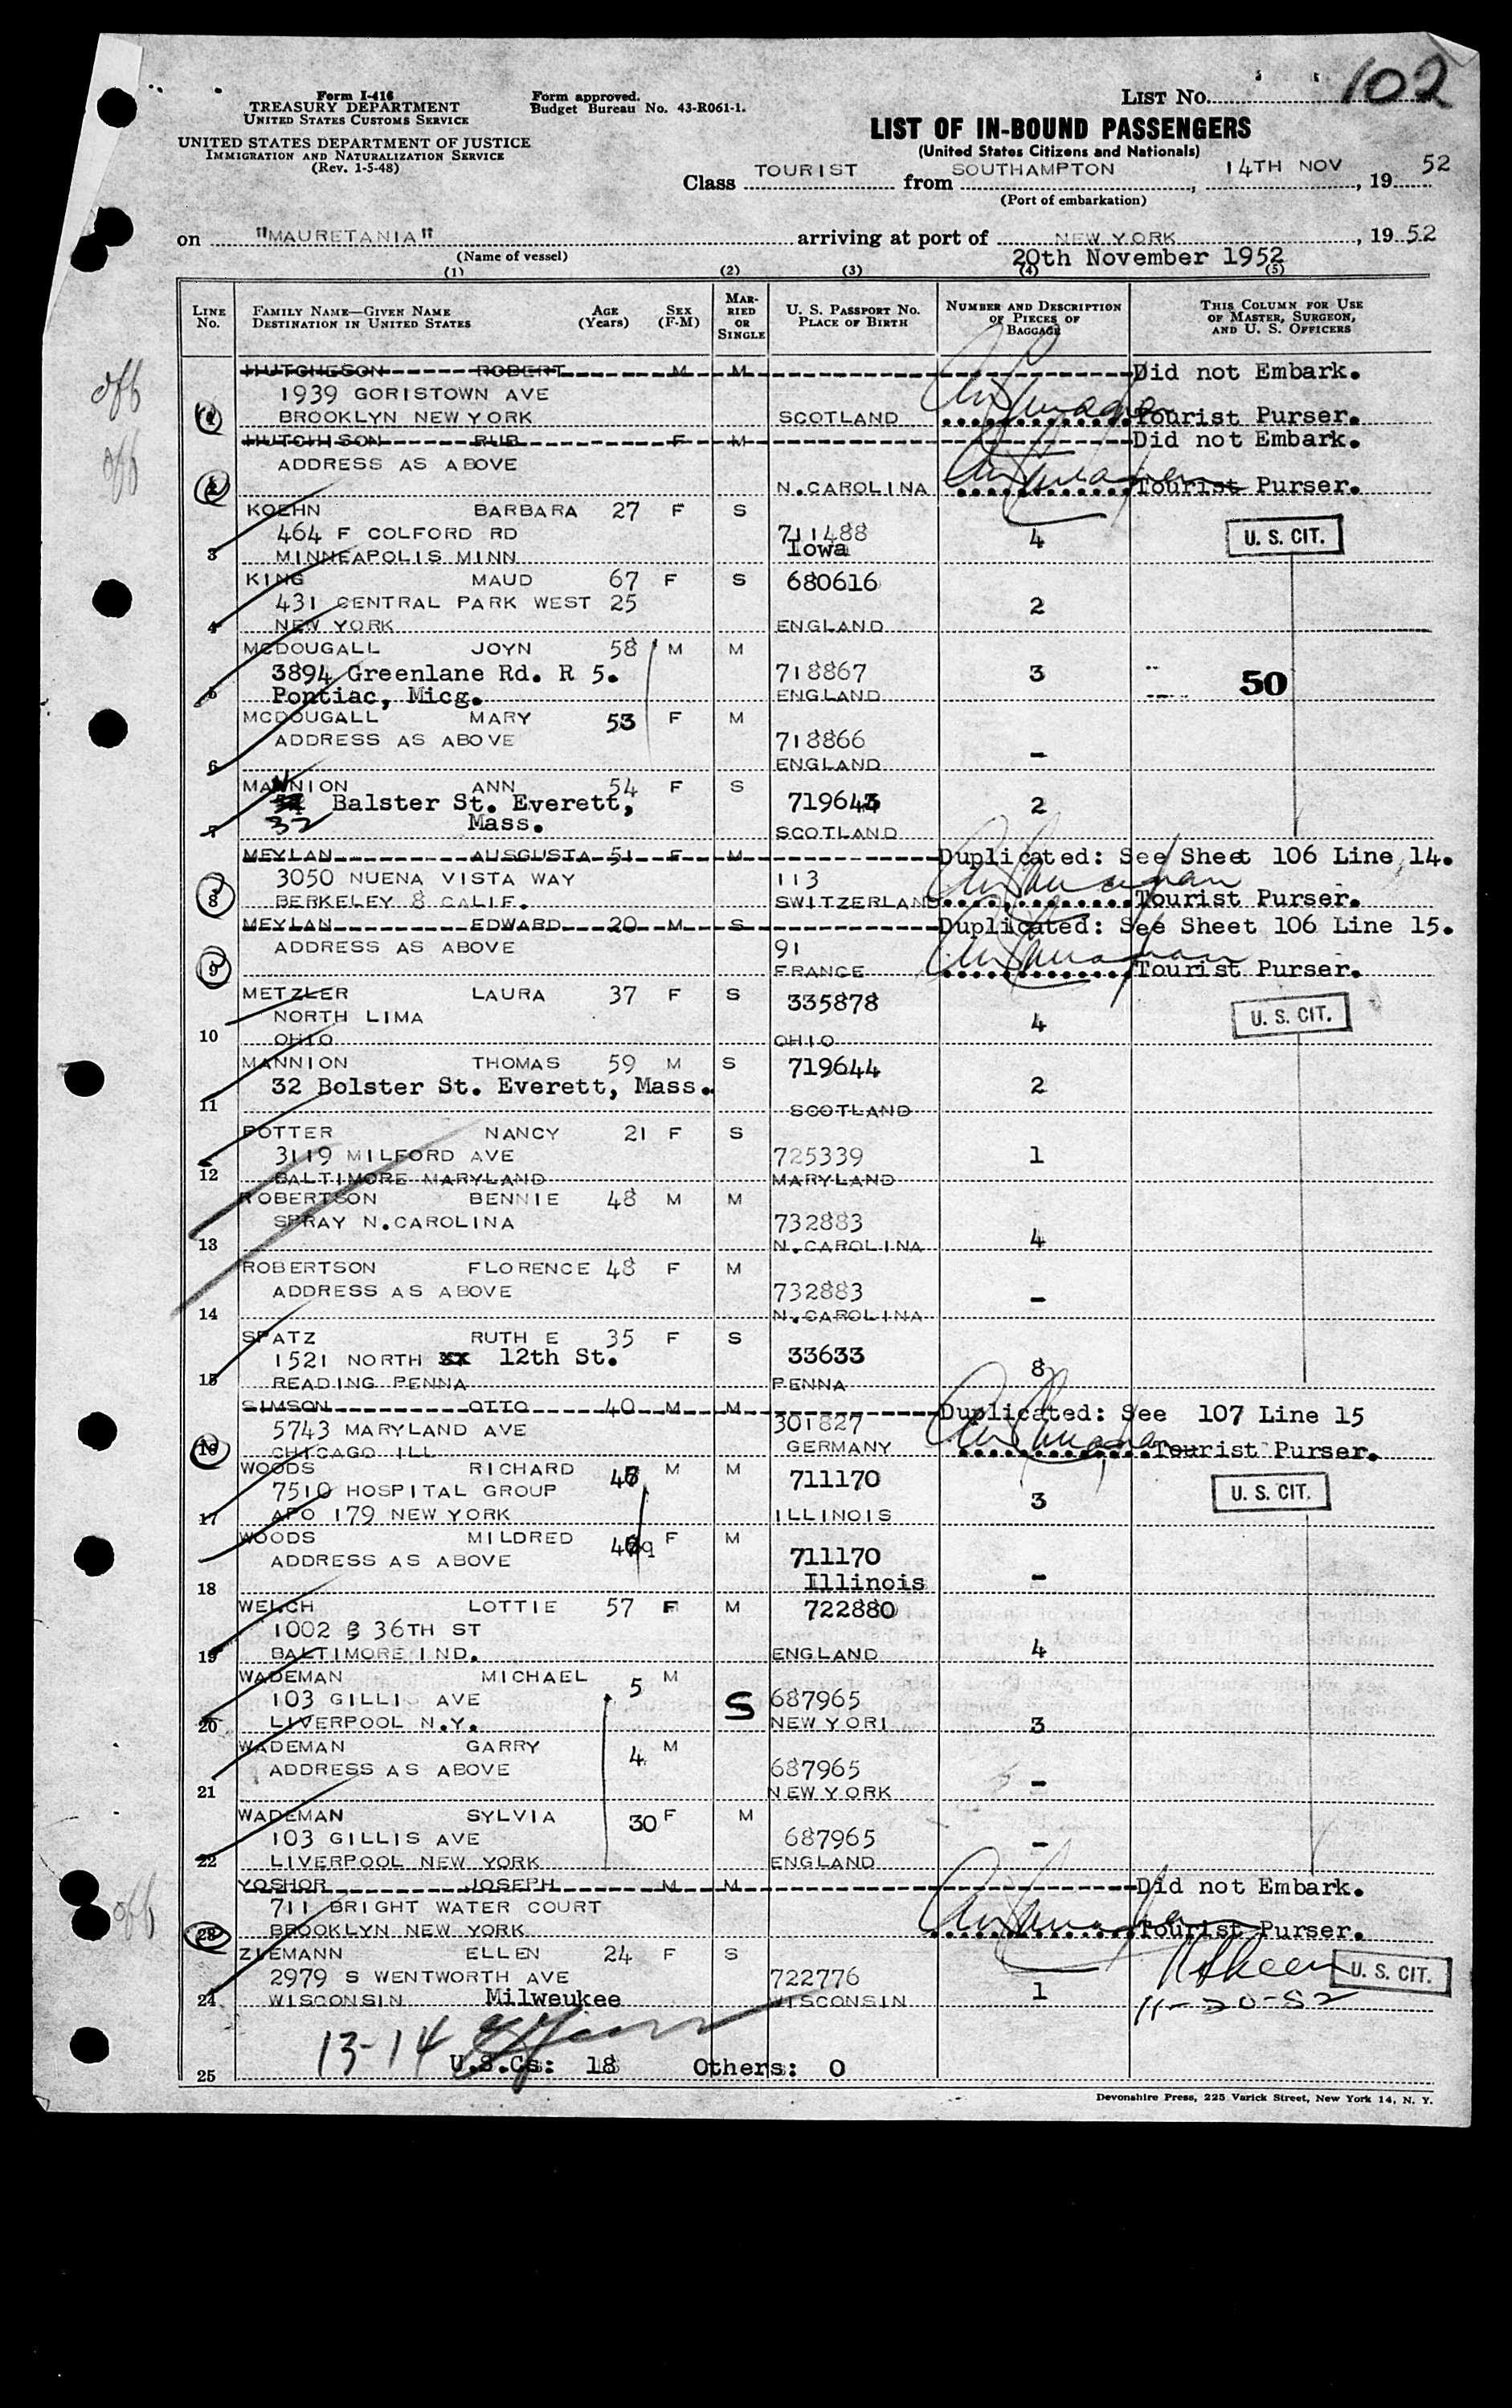 102
Form I-416
TREASURY DEPARTMENT
UNITED STATES CUSTOMS SERVICE
UNITED STATES DEPARTMENT OF JUSTICE
IMMIGRATION AND NATURALIZATION SERVICE
(Rev. 1-5-48)
Form approved.
Budget Bureau No. 43-R061-1.
LIST NO.
LIST OF IN-BOUND PASSENGERS
(United States Citizens and Nationals)
Class TOURIST from SOUTHAMPTON, 14TH NOV, 19 52
(Port of embarkation)
on "MAURETANIA" arriving at port of NEW YORK, 19 52
(Name of vessel) 20th November 1952
(1) (2) (3) (4) (5)
LINE No. FAMILY NAME—GIVEN NAME DESTINATION IN UNITED STATES AGE (Years) SEX (F-M) MARRIED OR SINGLE U. S. PASSPORT NO. PLACE OF BIRTH NUMBER AND DESCRIPTION OF PIECES OF BAGGAGE THIS COLUMN FOR USE OF MASTER, SURGEON, AND U. S. OFFICERS
HUTCHESON ROBERT M M Did not Embark.
off 1939 GORISTOWN AVE
1 BROOKLYN NEW YORK SCOTLAND Tourist Purser.
HUTCHISON RUB F M Did not Embark.
off ADDRESS AS ABOVE
2 N.CAROLINA Tourist Purser.
KOEHN BARBARA 27 F S
464 F COLFORD RD 711488 4 U. S. CIT.
3 MINNEAPOLIS MINN Iowa
KING MAUD 67 F S 680616
431 CENTRAL PARK WEST 25 2
4 NEW YORK ENGLAND
MCDOUGALL JOYN 58 M M
3894 Greenlane Rd. R 5. 718867 3 50
5 Pontiac, Micg. ENGLAND
MCDOUGALL MARY 53 F M
ADDRESS AS ABOVE 718866 -
6 ENGLAND
MANNION ANN 54 F S
Balster St. Everett, 719643 2
7 32 Mass. SCOTLAND
MEYLAN AUSGUSTA 51 F M Duplicated: See Sheet 106 Line 14.
3050 NUENA VISTA WAY 113
8 BERKELEY 8 CALIF. SWITZERLAND Tourist Purser.
MEYLAN EDWARD 20 M S Duplicated: See Sheet 106 Line 15.
ADDRESS AS ABOVE 91
9 FRANCE Tourist Purser.
METZLER LAURA 37 F S 335878
NORTH LIMA 4 U. S. CIT.
10 OHIO OHIO
MANNION THOMAS 59 M S 719644
32 Bolster St. Everett, Mass. 2
11 SCOTLAND
POTTER NANCY 21 F S
3119 MILFORD AVE 725339 1
12 BALTIMORE MARYLAND MARYLAND
ROBERTSON BENNIE 48 M M
SPRAY N.CAROLINA 732883 4
13 N.CAROLINA
ROBERTSON FLORENCE 48 F M
ADDRESS AS ABOVE 732883 -
14 N.CAROLINA
SPATZ RUTH E 35 F S
1521 NORTH xx 12th St. 33633 8
15 READING PENNA PENNA
SIMSON OTTO 40 M M Duplicated: See 107 Line 15
5743 MARYLAND AVE 301827
16 CHICAGO ILL GERMANY Tourist Purser.
WOODS RICHARD M M 711170
7510 HOSPITAL GROUP 3 U. S. CIT.
17 APO 179 NEW YORK ILLINOIS
WOODS MILDRED F M
ADDRESS AS ABOVE 711170 -
18 Illinois
WELCH LOTTIE 57 F M 722880
1002 36TH ST 4
19 BALTIMORE IND. ENGLAND
WADEMAN MICHAEL 5 M
103 GILLIS AVE S 687965
20 LIVERPOOL N.Y. NEW YORI 3
WADEMAN GARRY 4 M
ADDRESS AS ABOVE 687965 -
21 NEW YORK
WADEMAN SYLVIA 30 F M
103 GILLIS AVE 687965 -
22 LIVERPOOL NEW YORK ENGLAND
YOSHOR JOSEPH M M Did not Embark.
off 711 BRIGHT WATER COURT
23 BROOKLYN NEW YORK Tourist Purser.
ZIEMANN ELLEN 24 F S
2979 S WENTWORTH AVE 722776 1 U. S. CIT.
24 WISCONSIN Milweukee WISCONSIN 11-20-52
13-14
25 U.S.Cs: 18 Others: 0
Devonshire Press, 225 Varick Street, New York 14, N. Y.